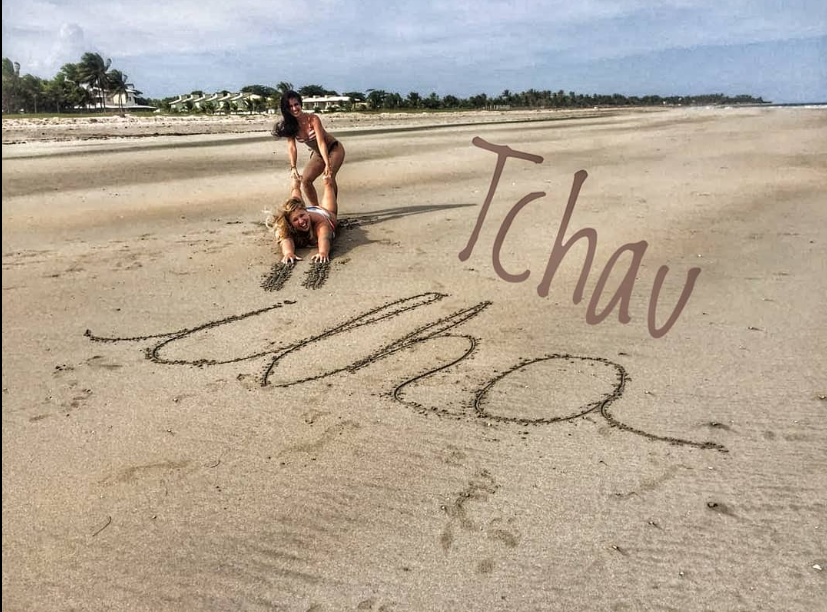 Tchau
ilha